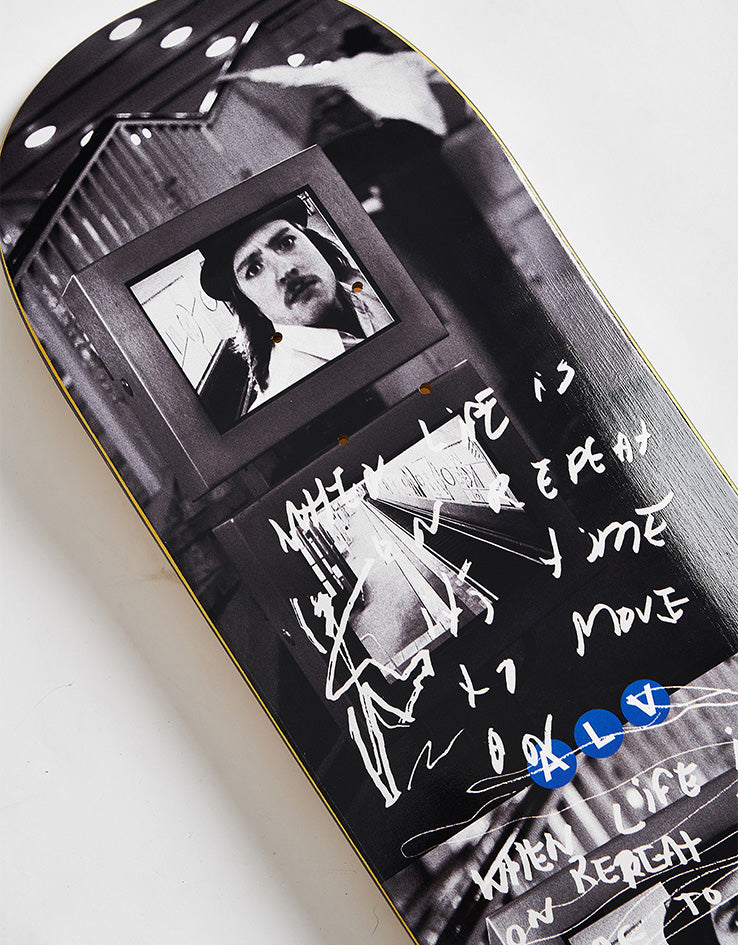 WHEN LiFE iS
ON REPEAT
iTS TiME
TO MOVE
ON
ALA
WHEN LiFE i
ON REPEAT
TO